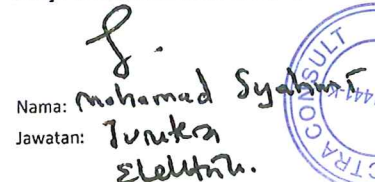 Nama: Mohamad
Jawatan: Jurutera
Elektrik.
CONSULT